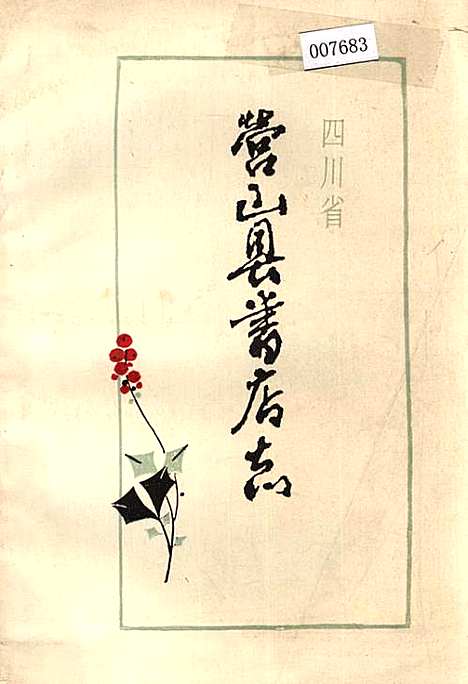 007683
四川省
营山县書店志